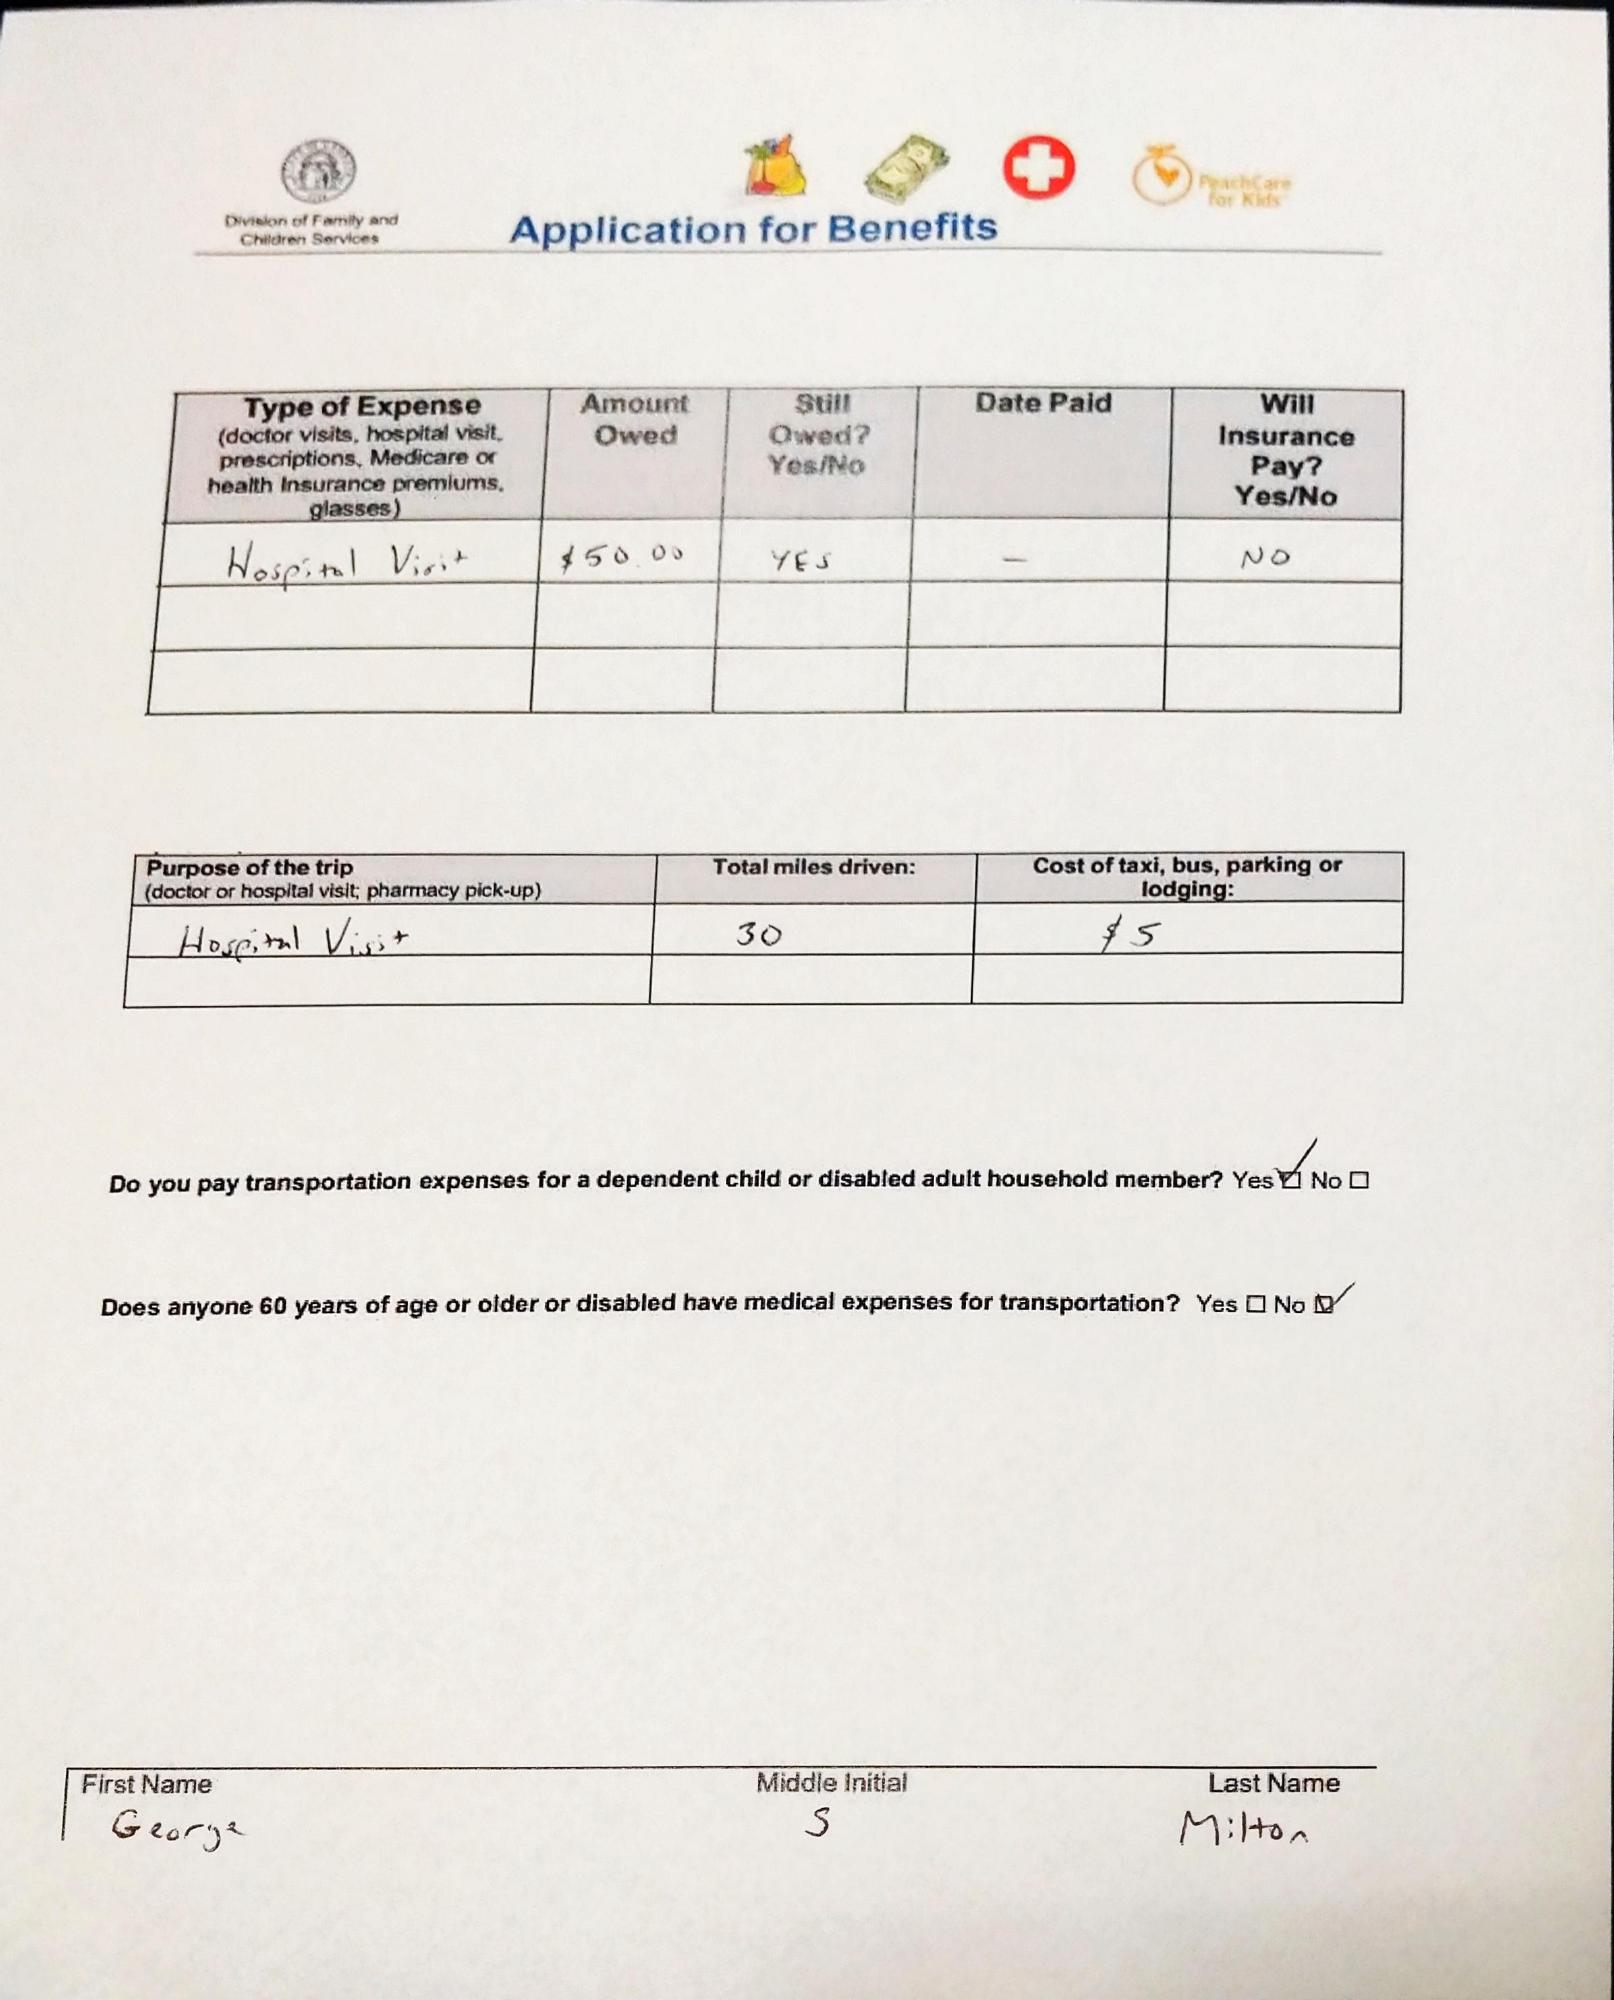 Division of Family and
Children Services
Application for Benefits
PeachCare
for Kids
Type of Expense
(doctor visits, hospital visit,
prescriptions, Medicare or
health Insurance premiums,
glasses)
Amount
Owed
Still
Owed?
Yes/No
Date Paid
Will
Insurance
Pay?
Yes/No
Hospital Visit $50.00 YES — NO
Purpose of the trip
(doctor or hospital visit; pharmacy pick-up)
Total miles driven:
Cost of taxi, bus, parking or
lodging:
Hospital Visit 30 $5
Do you pay transportation expenses for a dependent child or disabled adult household member? Yes ☑ No ☐
Does anyone 60 years of age or older or disabled have medical expenses for transportation? Yes ☐ No ☑
First Name Middle Initial Last Name
George S Milton